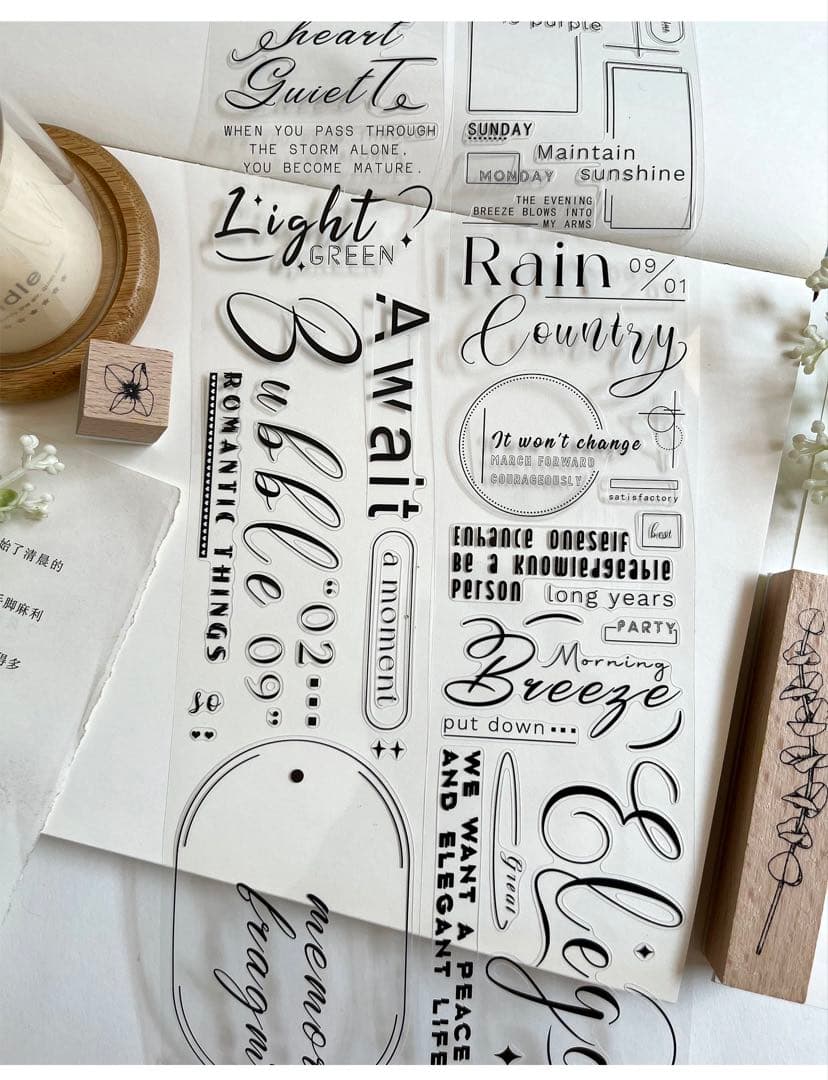 heart
Quiet
WHEN YOU PASS THROUGH
THE STORM ALONE,
YOU BECOME MATURE.
Light
GREEN
Bubble 09"
"02
Await
a moment
ROMANTIC THINGS
so
memo
fragm
purple
SUNDAY
MONDAY
Maintain
sunshine
THE EVENING
BREEZE BLOWS INTO
MY ARMS
Rain
09/01
Country
It won't change
MARCH FORWARD
COURAGEOUSLY
satisfactory
Enhance oneself
Be a knowledgeable
person
long years
PARTY
Morning
Breeze
put down...
WE WANT A PEACE
AND ELEGANT LIFE
Great
Elega
dle
始了清晨的
手脚麻利
得多